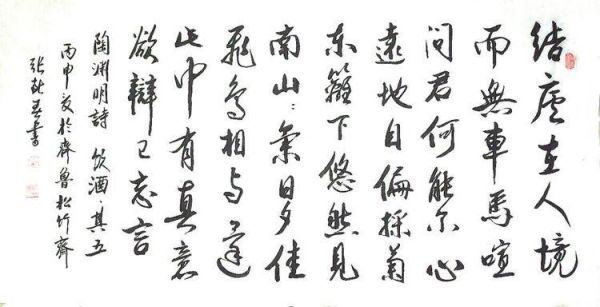 結廬在人境
而無車馬喧
問君何能尔心
遠地自偏採菊
东籬下悠然見
南山々氣日夕佳
飛鳥相与還
此中有真意
欲辯已忘言
陶渊明詩 饮酒·其五
丙申夏於齊魯松竹齋
张春書